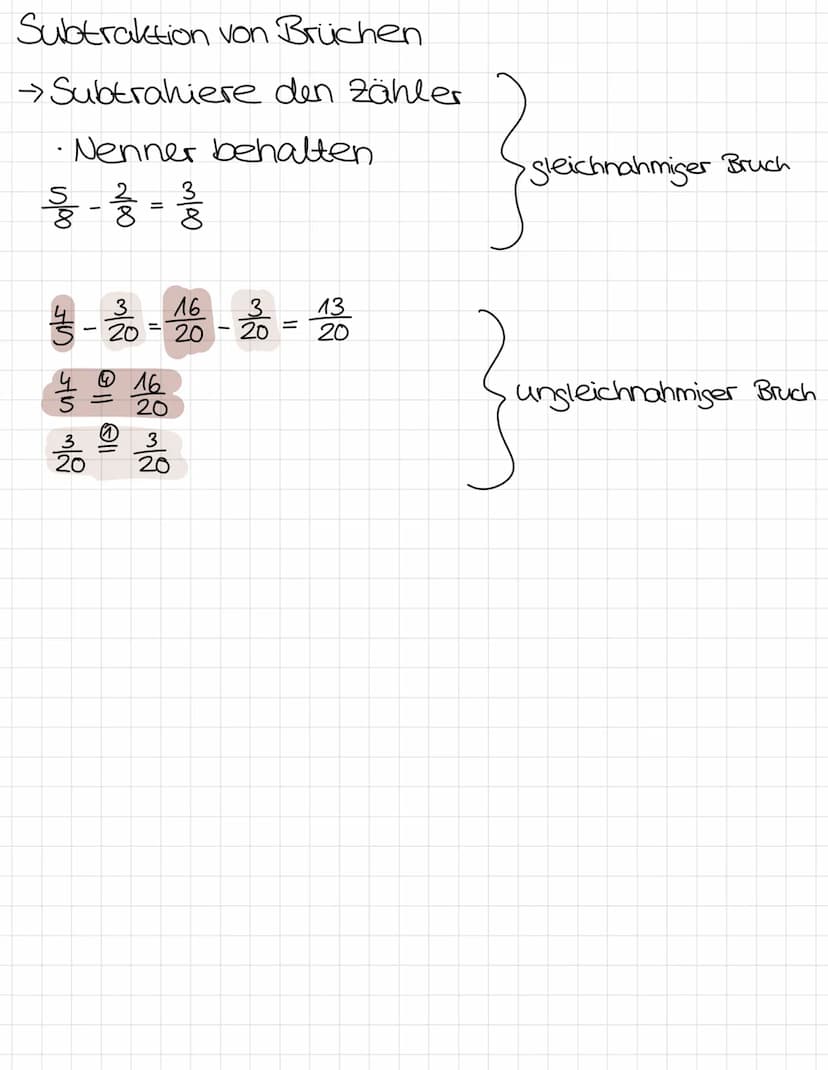 Subtraktion von Brüchen
→ Subtrahiere den Zähler
· Nenner behalten
gleichnahmiger Bruch
5/8 - 2/8 = 3/8
4/5 - 3/20 = 16/20 - 3/20 = 13/20
4/5 ④= 16/20
ungleichnahmiger Bruch
3/20 ①= 3/20